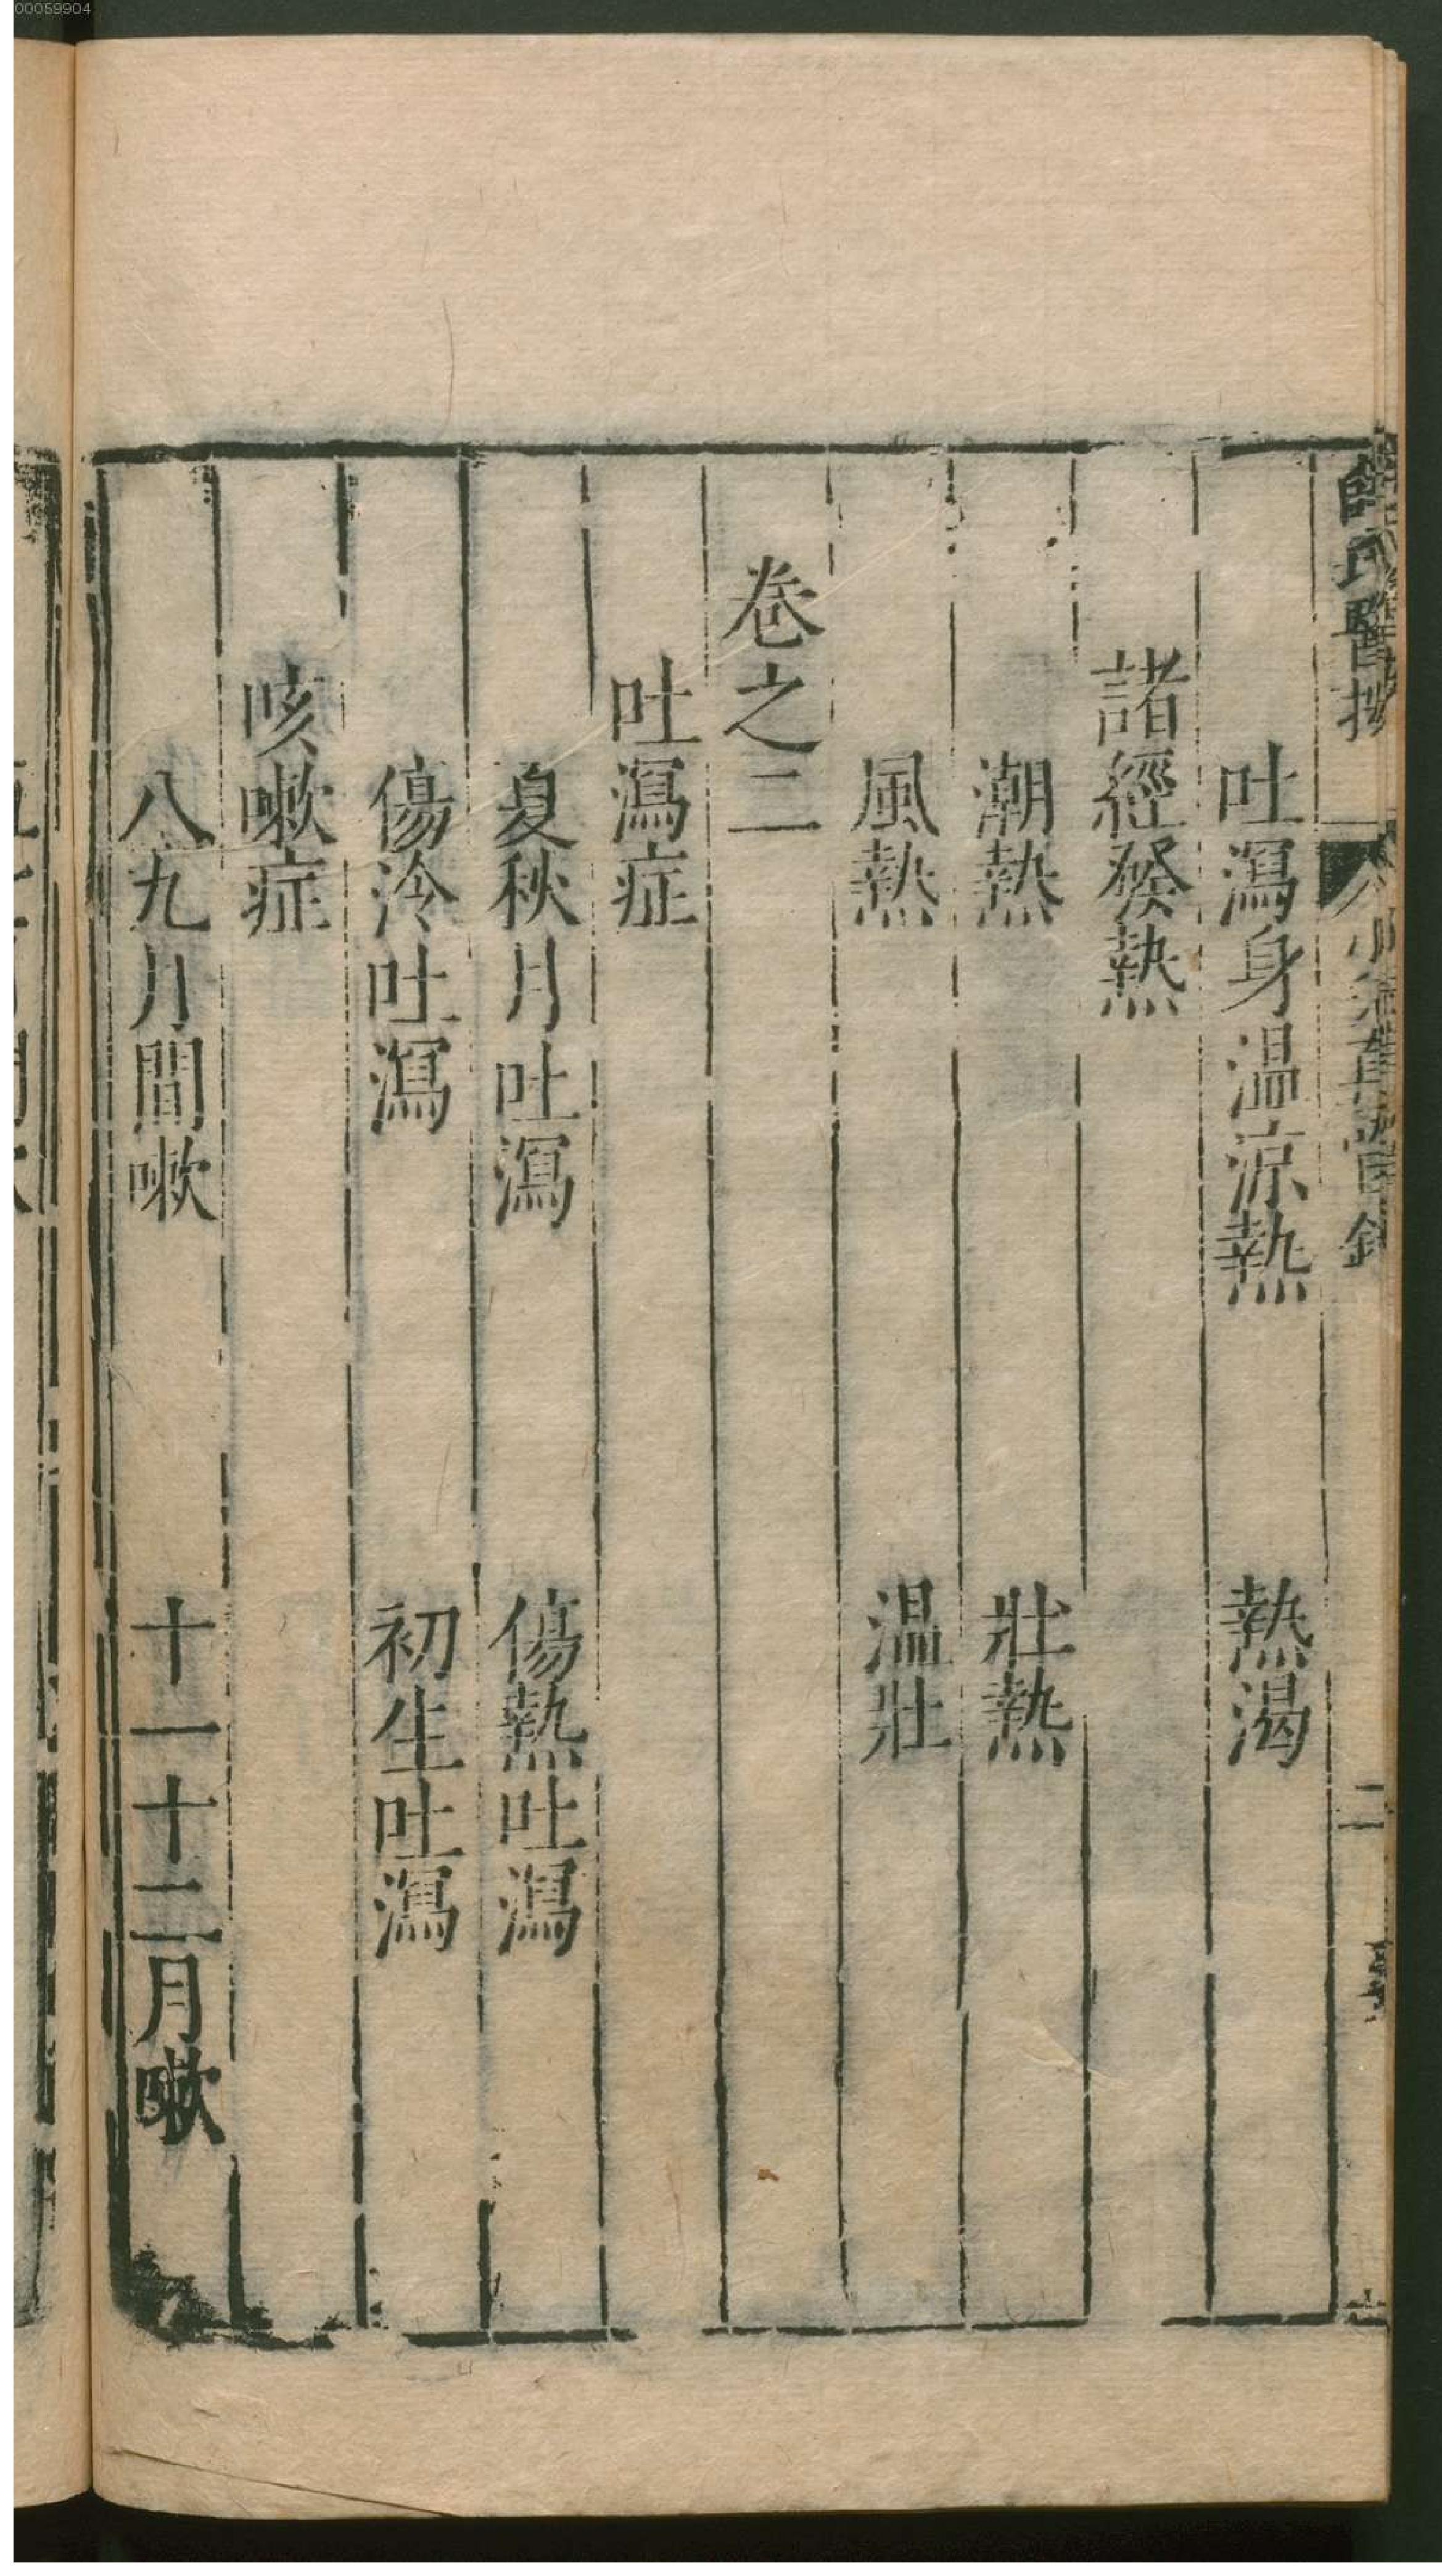 00059904
吐瀉身温涼熱　熱渴
諸經發熱
潮熱　壯熱
風熱　温壯
卷之二
吐瀉症
夏秋月吐瀉　傷熱吐瀉
傷冷吐瀉　初生吐瀉
咳嗽症
八九月間嗽　十一十二月嗽